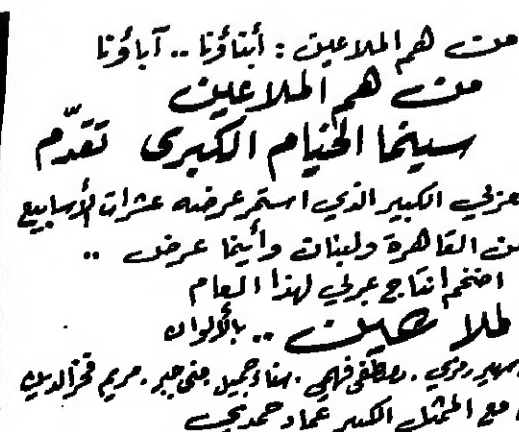 من هم الملاعين : أبناؤنا .. آباؤنا
من هم الملاعين
سينما الخيام الكبرى تقدّم
لعربي الكبير الذي استمر عرضه عشرات الأسابيع
من القاهرة ولبنان وأينما عرض ..
اضخم انتاج عربي لهذا العام
لملاعين .. بالألوان
سهير رمزي . مصطفى فهمي . سناء جميل . منى جبر . مريم فخر الدين
مع الممثل الكبير عماد حمدي